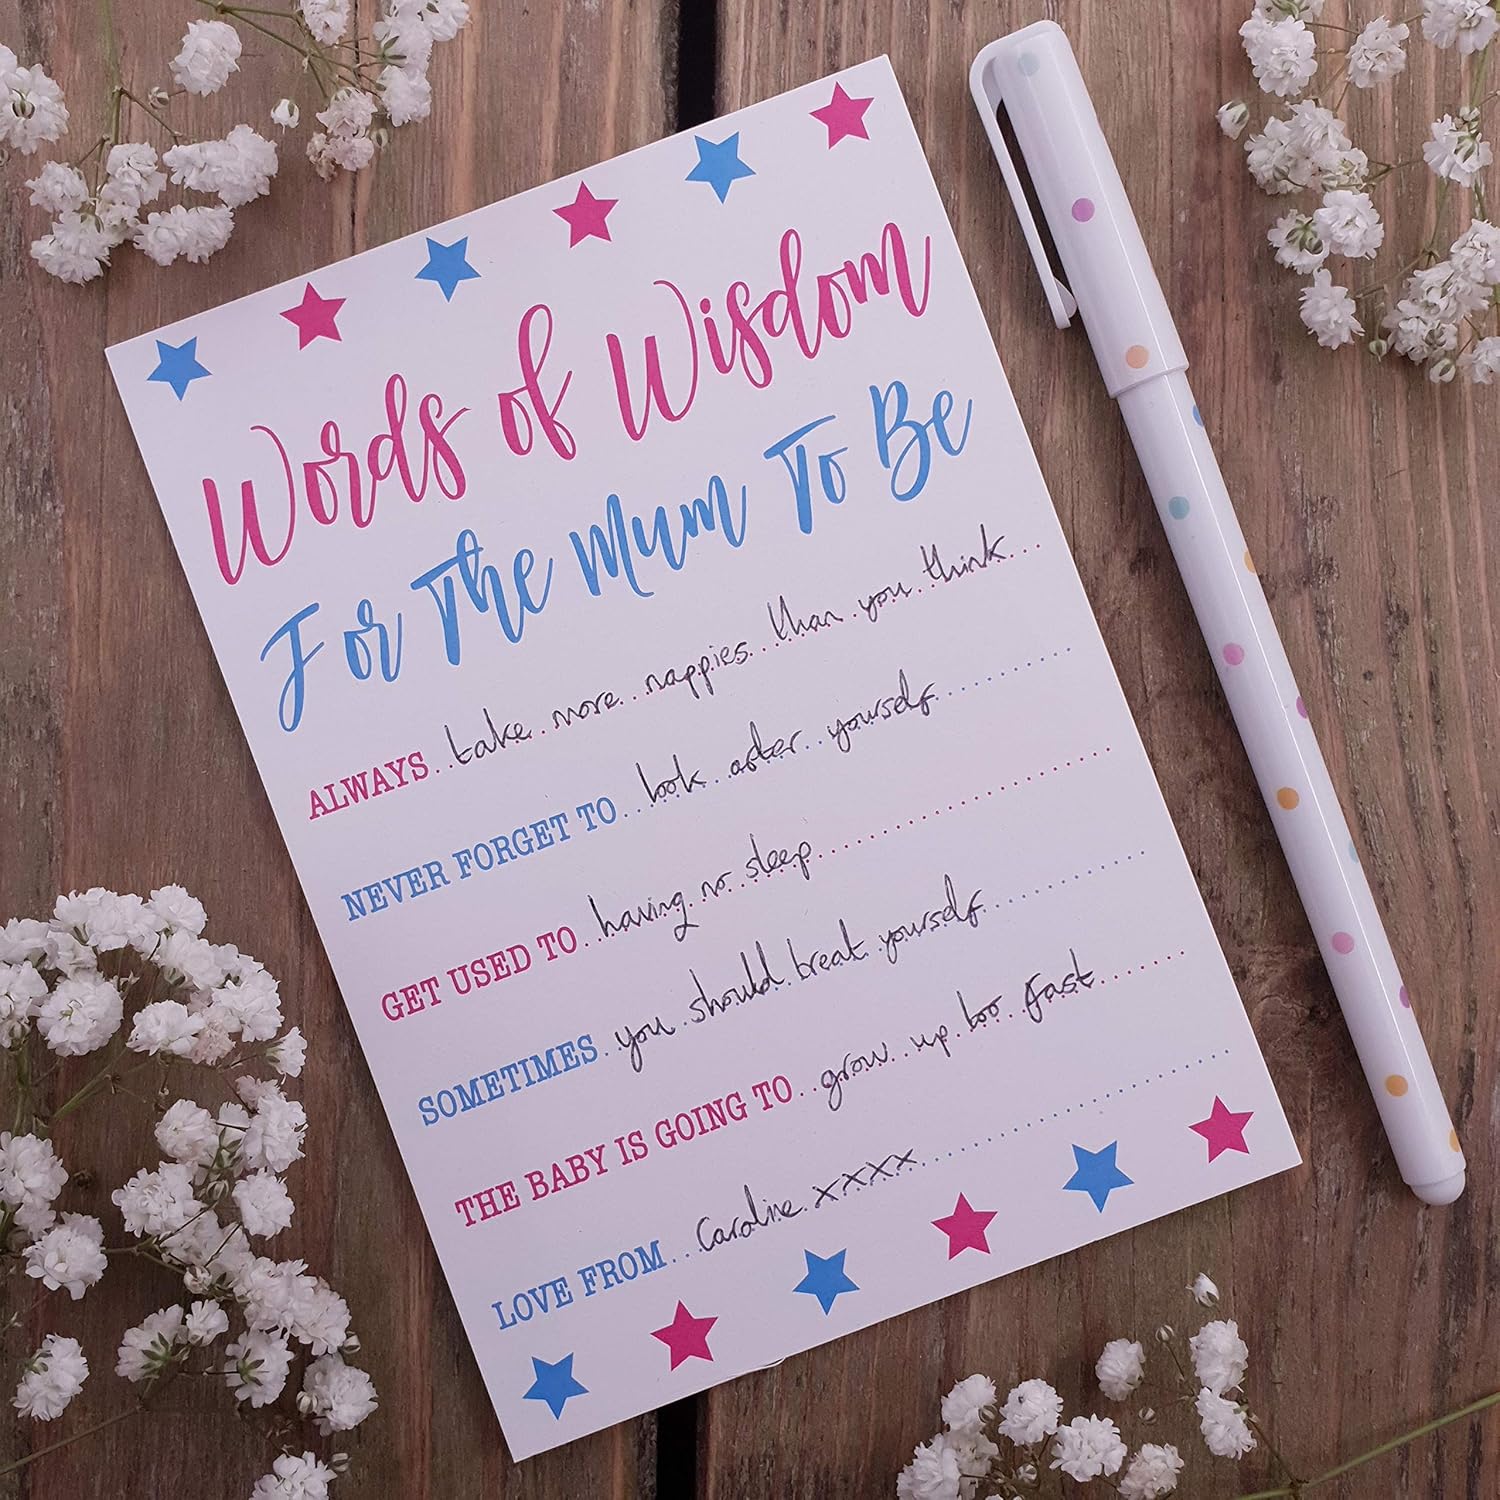 Words of Wisdom
For The Mum To Be
ALWAYS take more nappies than you think
NEVER FORGET TO look after yourself
GET USED TO having no sleep
SOMETIMES you should break yourself
THE BABY IS GOING TO grow up too fast
LOVE FROM Caroline xxxx